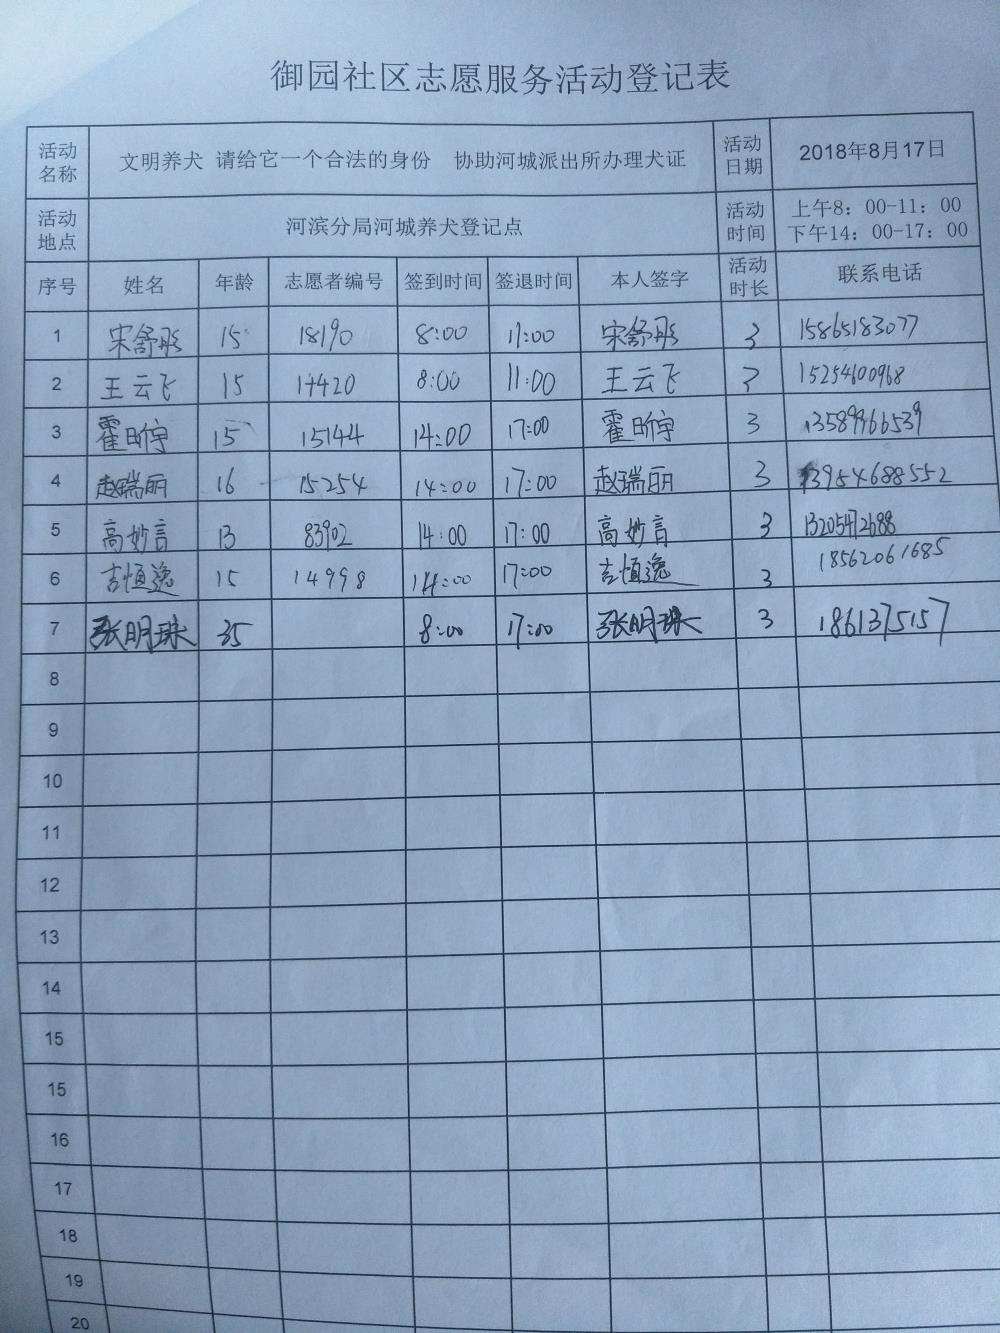 御园社区志愿服务活动登记表
活动名称 文明养犬 请给它一个合法的身份 协助河城派出所办理犬证 活动日期 2018年8月17日
活动地点 河滨分局河城养犬登记点 活动时间 上午8：00-11：00
下午14：00-17：00
序号 姓名 年龄 志愿者编号 签到时间 签退时间 本人签字 活动时长 联系电话
1 宋舒彤 15 18190 8:00 11:00 宋舒彤 3 15865183077
2 王云飞 15 17420 8:00 11:00 王云飞 3 15254600968
3 霍昕宇 15 15144 14:00 17:00 霍昕宇 3 13589966539
4 赵瑞丽 16 15254 14:00 17:00 赵瑞丽 3 13954688552
5 高妙言 13 83902 14:00 17:00 高妙言 3 13205472688
6 吉恒逸 15 14998 14:00 17:00 吉恒逸 3 18562061685
7 张明珠 35 8:00 17:00 张明珠 3 1861375157
8
9
10
11
12
13
14
15
15
16
17
18
19
20